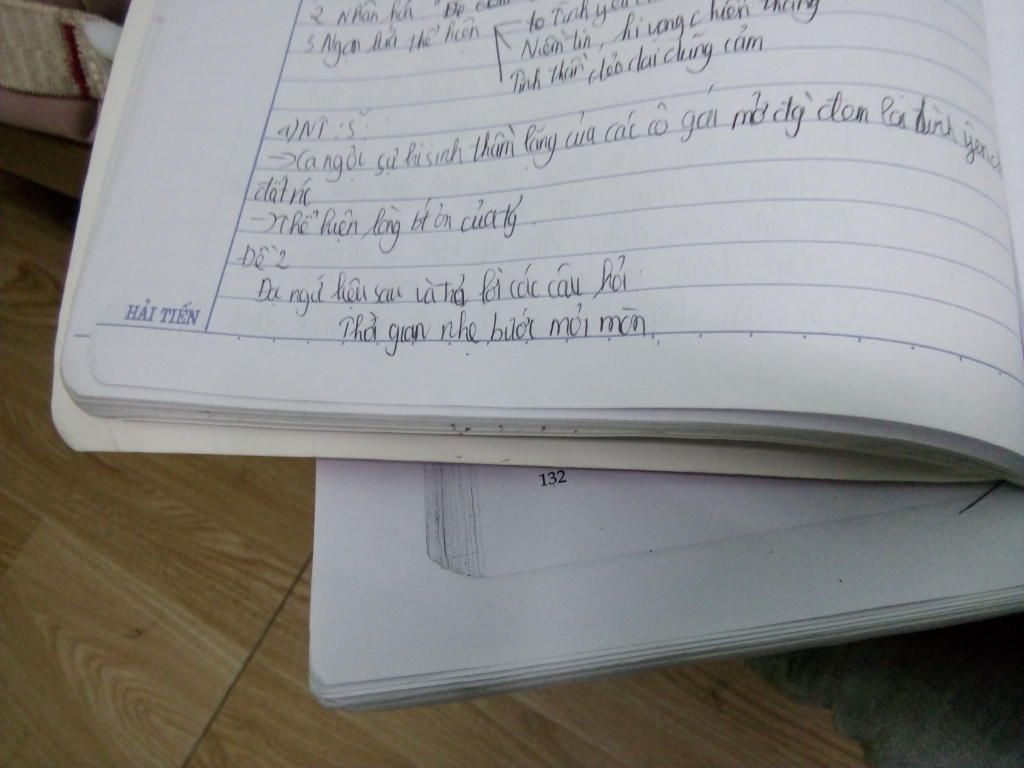 2 Nhân hóa: "Đọ
3 Ngọn lửa thể hiện
to Tình yêu
Niềm tin, hi vọng chiến thắng
Tinh thần dẻo dai dũng cảm
4) NT: S
→ Ca ngợi sự hi sinh thầm lặng của các cô gái mở đg đem lại bình yên
đất nc
→ Thể hiện lòng bt ơn của tg.
Đề 2
Đọc ngữ liệu sau và trả lời các câu hỏi.
Thời gian nhẹ bước mỏi mòn
HẢI TIẾN
132